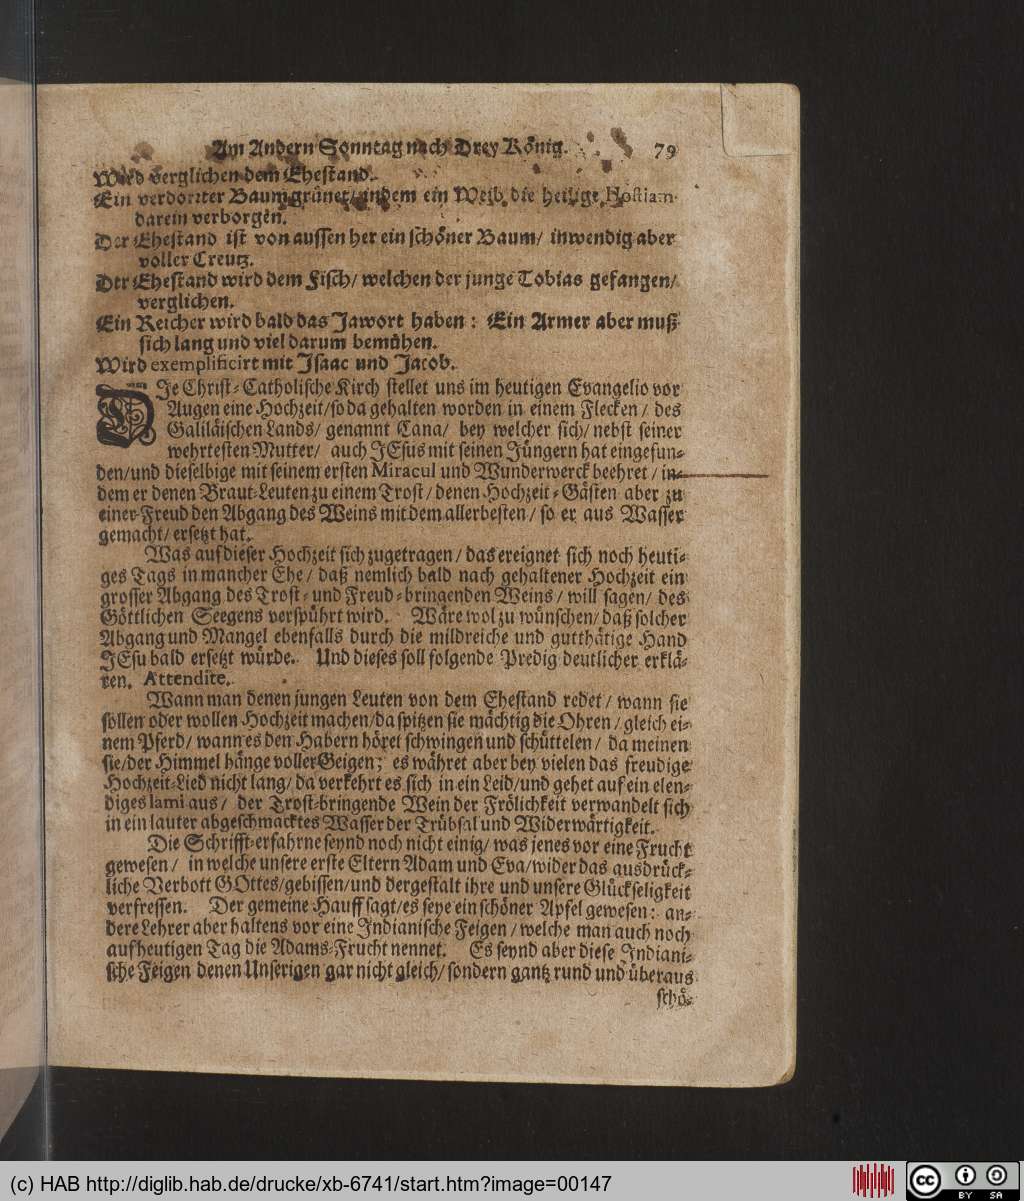 Am Andern Sonntag nach Drey König. 79
Wird verglichen dem Ehestand.
Ein verdorꝛter Baum grünet/ indem ein Weib die heilige Hostiam
darein verborgen.
Der Ehestand ist von aussen her ein schöner Baum/ inwendig aber
voller Creutz.
Der Ehestand wird dem Fisch/ welchen der junge Tobias gefangen/
verglichen.
Ein Reicher wird bald das Jawort haben: Ein Armer aber muß
sich lang und viel darum bemühen.
Wird exemplificirt mit Isaac und Jacob.
DIe Christ-Catholische Kirch stellet uns im heutigen Evangelio vor
Augen eine Hochzeit/ so da gehalten worden in einem Flecken/ des
Galiläischen Lands/ genannt Cana/ bey welcher sich/ nebst seiner
wehrtesten Mutter/ auch JEsus mit seinen Jüngern hat eingefun-
den/ und dieselbige mit seinem ersten Miracul und Wunderwerck beehret/ in-
dem er denen Braut-Leuten zu einem Trost/ denen Hochzeit-Gästen aber zu
einer Freud den Abgang des Weins mit dem allerbesten/ so er aus Wasser
gemacht/ ersetzt hat.
Was auf dieser Hochzeit sich zugetragen/ das ereignet sich noch heuti-
ges Tags in mancher Ehe/ daß nemlich bald nach gehaltener Hochzeit ein
grosser Abgang des Trost- und Freud-bringenden Weins/ will sagen/ des
Göttlichen Seegens verspührt wird. Wäre wol zu wünschen/ daß solcher
Abgang und Mangel ebenfalls durch die mildreiche und gutthätige Hand
JEsu bald ersetzt würde. Und dieses soll folgende Predig deutlicher erklä-
ren. Attendite.
Wann man denen jungen Leuten von dem Ehestand redet/ wann sie
sollen oder wollen Hochzeit machen/ da spitzen sie mächtig die Ohren/ gleich ei-
nem Pferd/ wann es den Habern höret schwingen und schüttelen/ da meinen
sie/ der Himmel hänge voller Geigen; es währet aber bey vielen das freudige
Hochzeit-Lied nicht lang/ da verkehrt es sich in ein Leid/ und gehet auf ein elen-
diges lami aus/ der Trost-bringende Wein der Frölichkeit verwandelt sich
in ein lauter abgeschmacktes Wasser der Trübsal und Widerwärtigkeit.
Die Schrifft-erfahrne seynd noch nicht einig/ was jenes vor eine Frucht
gewesen/ in welche unsere erste Eltern Adam und Eva/ wider das ausdrück-
liche Verbott GOttes/ gebissen/ und dergestalt ihre und unsere Glückseligkeit
verfressen. Der gemeine Hauff sagt/ es seye ein schöner Apfel gewesen: an-
dere Lehrer aber haltens vor eine Indianische Feigen/ welche man auch noch
auf heutigen Tag die Adams-Frucht nennet. Es seynd aber diese Indiani-
sche Feigen denen Unserigen gar nicht gleich/ sondern gantz rund und überaus
schö-
(c) HAB http://diglib.hab.de/drucke/xb-6741/start.htm?image=00147
cc BY SA